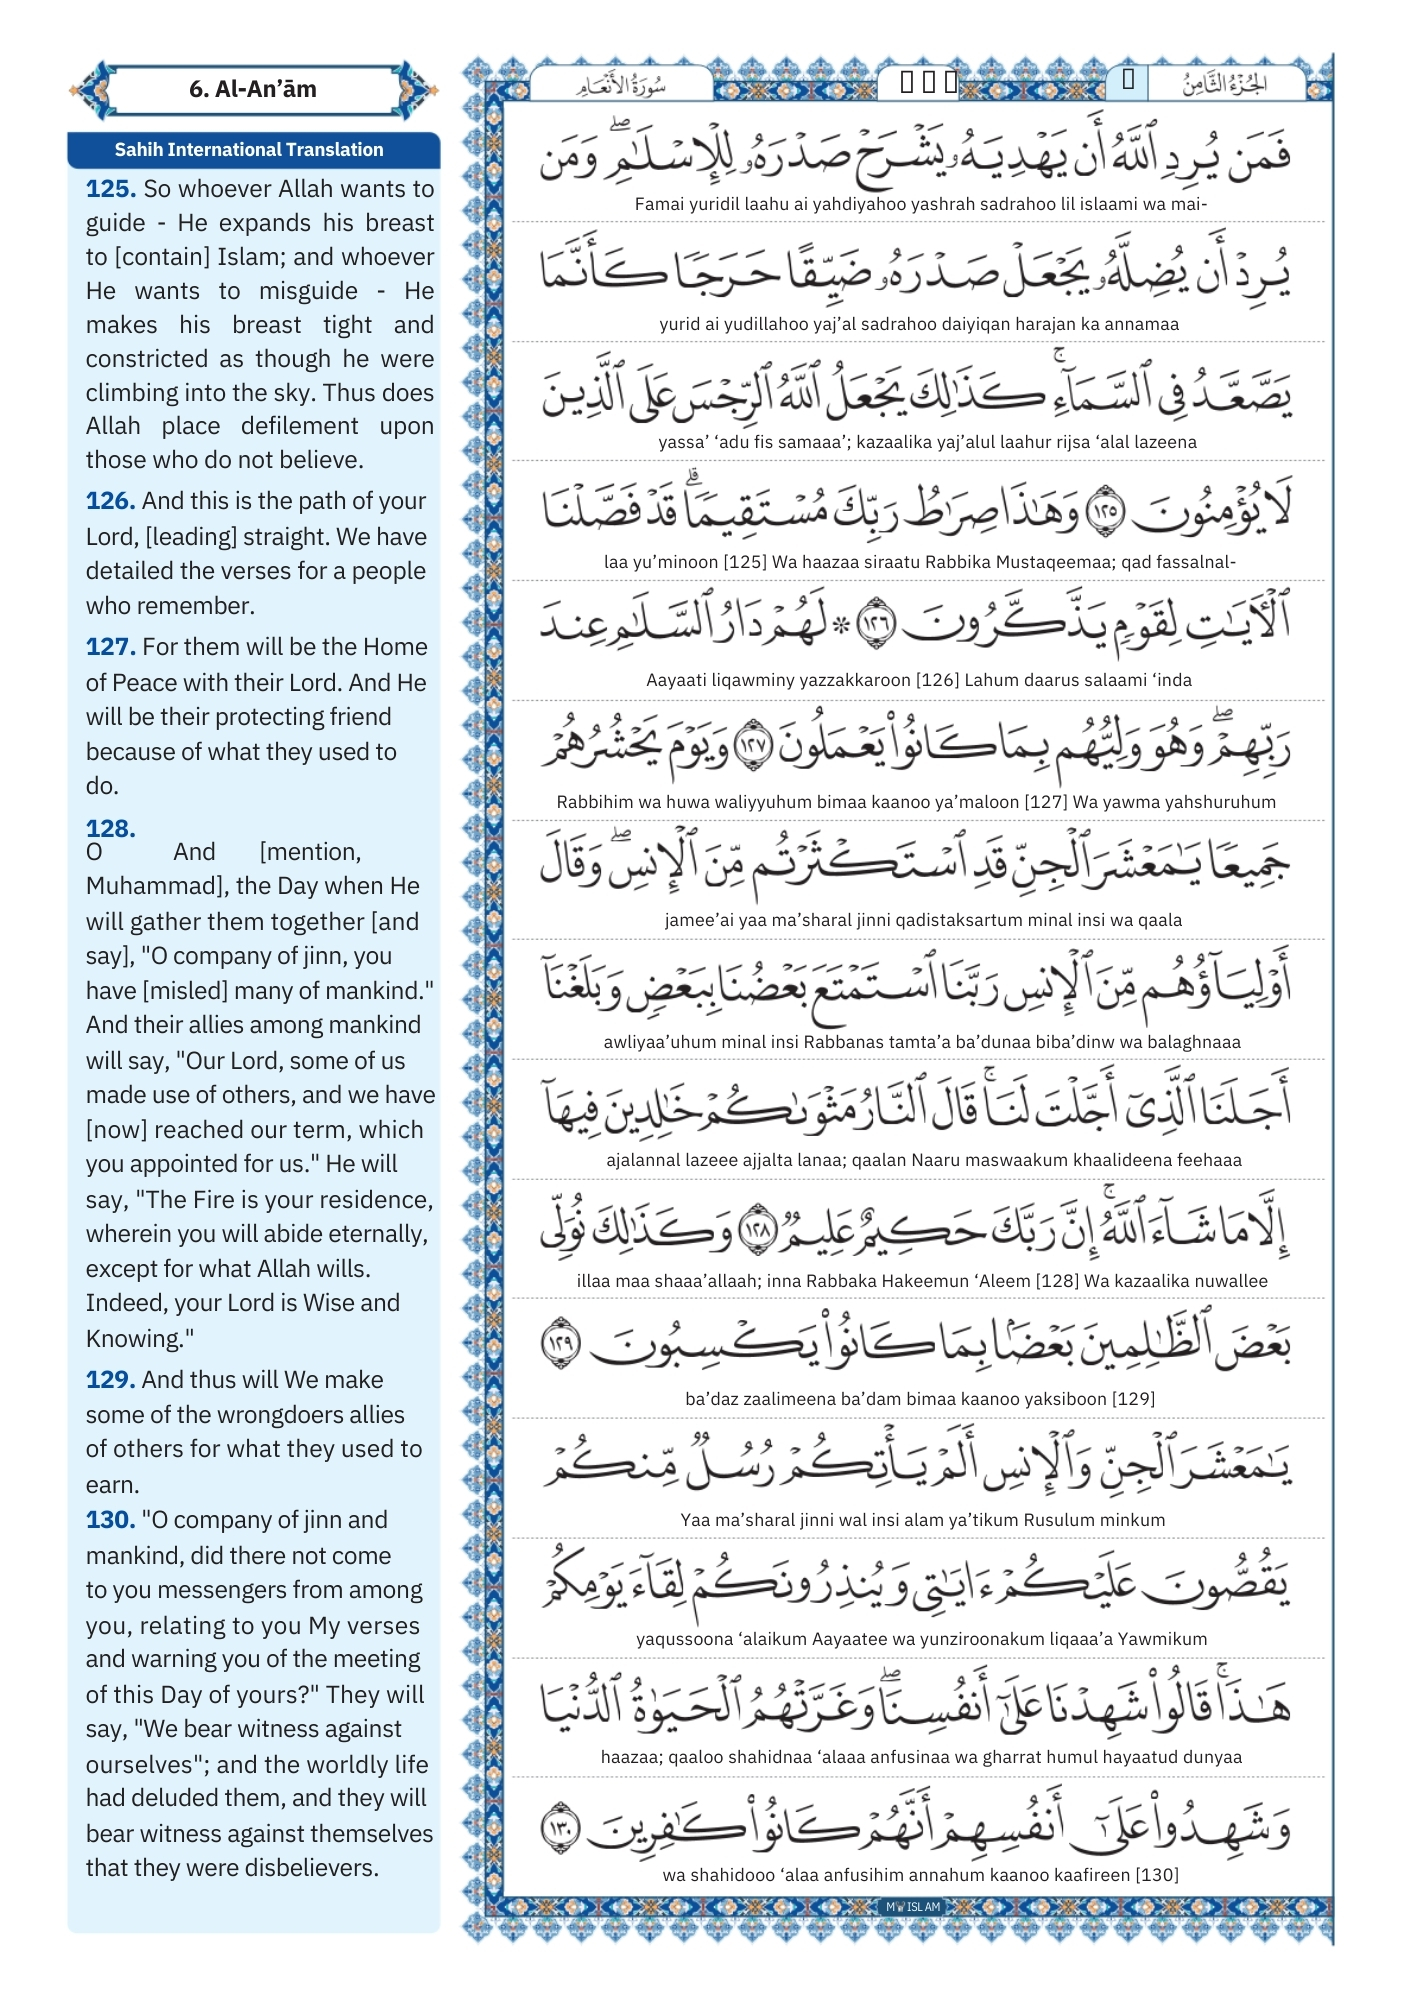 6. Al-An’ām
Sahih International Translation
125. So whoever Allah wants to
guide - He expands his breast
to [contain] Islam; and whoever
He wants to misguide - He
makes his breast tight and
constricted as though he were
climbing into the sky. Thus does
Allah place defilement upon
those who do not believe.
126. And this is the path of your
Lord, [leading] straight. We have
detailed the verses for a people
who remember.
127. For them will be the Home
of Peace with their Lord. And He
will be their protecting friend
because of what they used to
do.
128.
O And [mention,
Muhammad], the Day when He
will gather them together [and
say], "O company of jinn, you
have [misled] many of mankind."
And their allies among mankind
will say, "Our Lord, some of us
made use of others, and we have
[now] reached our term, which
you appointed for us." He will
say, "The Fire is your residence,
wherein you will abide eternally,
except for what Allah wills.
Indeed, your Lord is Wise and
Knowing."
129. And thus will We make
some of the wrongdoers allies
of others for what they used to
earn.
130. "O company of jinn and
mankind, did there not come
to you messengers from among
you, relating to you My verses
and warning you of the meeting
of this Day of yours?" They will
say, "We bear witness against
ourselves"; and the worldly life
had deluded them, and they will
bear witness against themselves
that they were disbelievers.
الجُزْءُ الثَّامِنُ
سُورَةُ الأَنْعَام
فَمَن يُرِدِ ٱللَّهُ أَن يَهْدِيَهُۥ يَشْرَحْ صَدْرَهُۥ لِلْإِسْلَٰمِ ۖ وَمَن
Famai yuridil laahu ai yahdiyahoo yashrah sadrahoo lil islaami wa mai-
يُرِدْ أَن يُضِلَّهُۥ يَجْعَلْ صَدْرَهُۥ ضَيِّقًا حَرَجًا كَأَنَّمَا
yurid ai yudillahoo yaj’al sadrahoo daiyiqan harajan ka annamaa
يَصَّعَّدُ فِى ٱلسَّمَآءِ ۚ كَذَٰلِكَ يَجْعَلُ ٱللَّهُ ٱلرِّجْسَ عَلَى ٱلَّذِينَ
yassa’ ‘adu fis samaaa’; kazaalika yaj’alul laahur rijsa ‘alal lazeena
لَا يُؤْمِنُونَ ١٢٥ وَهَٰذَا صِرَٰطُ رَبِّكَ مُسْتَقِيمًا ۗ قَدْ فَصَّلْنَا
laa yu’minoon [125] Wa haazaa siraatu Rabbika Mustaqeemaa; qad fassalnal-
ٱلْءَايَٰتِ لِقَوْمٍ يَذَّكَّرُونَ ١٢٦ * لَهُمْ دَارُ ٱلسَّلَٰمِ عِندَ
Aayaati liqawminy yazzakkaroon [126] Lahum daarus salaami ‘inda
رَبِّهِمْ ۖ وَهُوَ وَلِيُّهُم بِمَا كَانُوا۟ يَعْمَلُونَ ١٢٧ وَيَوْمَ يَحْشُرُهُمْ
Rabbihim wa huwa waliyyuhum bimaa kaanoo ya’maloon [127] Wa yawma yahshuruhum
جَمِيعًا يَٰمَعْشَرَ ٱلْجِنِّ قَدِ ٱسْتَكْثَرْتُم مِّنَ ٱلْإِنسِ ۖ وَقَالَ
jamee’ai yaa ma’sharal jinni qadistaksartum minal insi wa qaala
أَوْلِيَآؤُهُم مِّنَ ٱلْإِنسِ رَبَّنَا ٱسْتَمْتَعَ بَعْضُنَا بِبَعْضٍ وَبَلَغْنَآ
awliyaa’uhum minal insi Rabbanas tamta’a ba’dunaa biba’dinw wa balaghnaaa
أَجَلَنَا ٱلَّذِىٓ أَجَّلْتَ لَنَا ۚ قَالَ ٱلنَّارُ مَثْوَىٰكُمْ خَٰلِدِينَ فِيهَآ
ajalannal lazeee ajjalta lanaa; qaalan Naaru maswaakum khaalideena feehaaa
إِلَّا مَا شَآءَ ٱللَّهُ ۚ إِنَّ رَبَّكَ حَكِيمٌ عَلِيمٌ ١٢٨ وَكَذَٰلِكَ نُوَلِّى
illaa maa shaaa’allaah; inna Rabbaka Hakeemun ‘Aleem [128] Wa kazaalika nuwallee
بَعْضَ ٱلظَّٰلِمِينَ بَعْضًۢا بِمَا كَانُوا۟ يَكْسِبُونَ ١٢٩
ba’daz zaalimeena ba’dam bimaa kaanoo yaksiboon [129]
يَٰمَعْشَرَ ٱلْجِنِّ وَٱلْإِنسِ أَلَمْ يَأْتِكُمْ رُسُلٌ مِّنكُمْ
Yaa ma’sharal jinni wal insi alam ya’tikum Rusulum minkum
يَقُصُّونَ عَلَيْكُمْ ءَايَٰتِى وَيُنذِرُونَكُمْ لِقَآءَ يَوْمِكُمْ
yaqussoona ‘alaikum Aayaatee wa yunziroonakum liqaaa’a Yawmikum
هَٰذَا ۚ قَالُوا۟ شَهِدْنَا عَلَىٰٓ أَنفُسِنَا ۖ وَغَرَّتْهُمُ ٱلْحَيَوٰةُ ٱلدُّنْيَا
haazaa; qaaloo shahidnaa ‘alaaa anfusinaa wa gharrat humul hayaatud dunyaa
وَشَهِدُوا۟ عَلَىٰٓ أَنفُسِهِمْ أَنَّهُمْ كَانُوا۟ كَٰفِرِينَ ١٣٠
wa shahidooo ‘alaa anfusihim annahum kaanoo kaafireen [130]